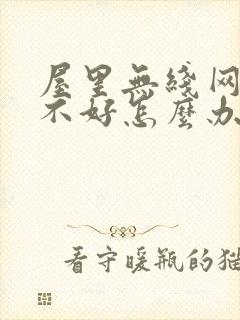 屋里無綫网
不好怎麼办
看守暖瓶的猫